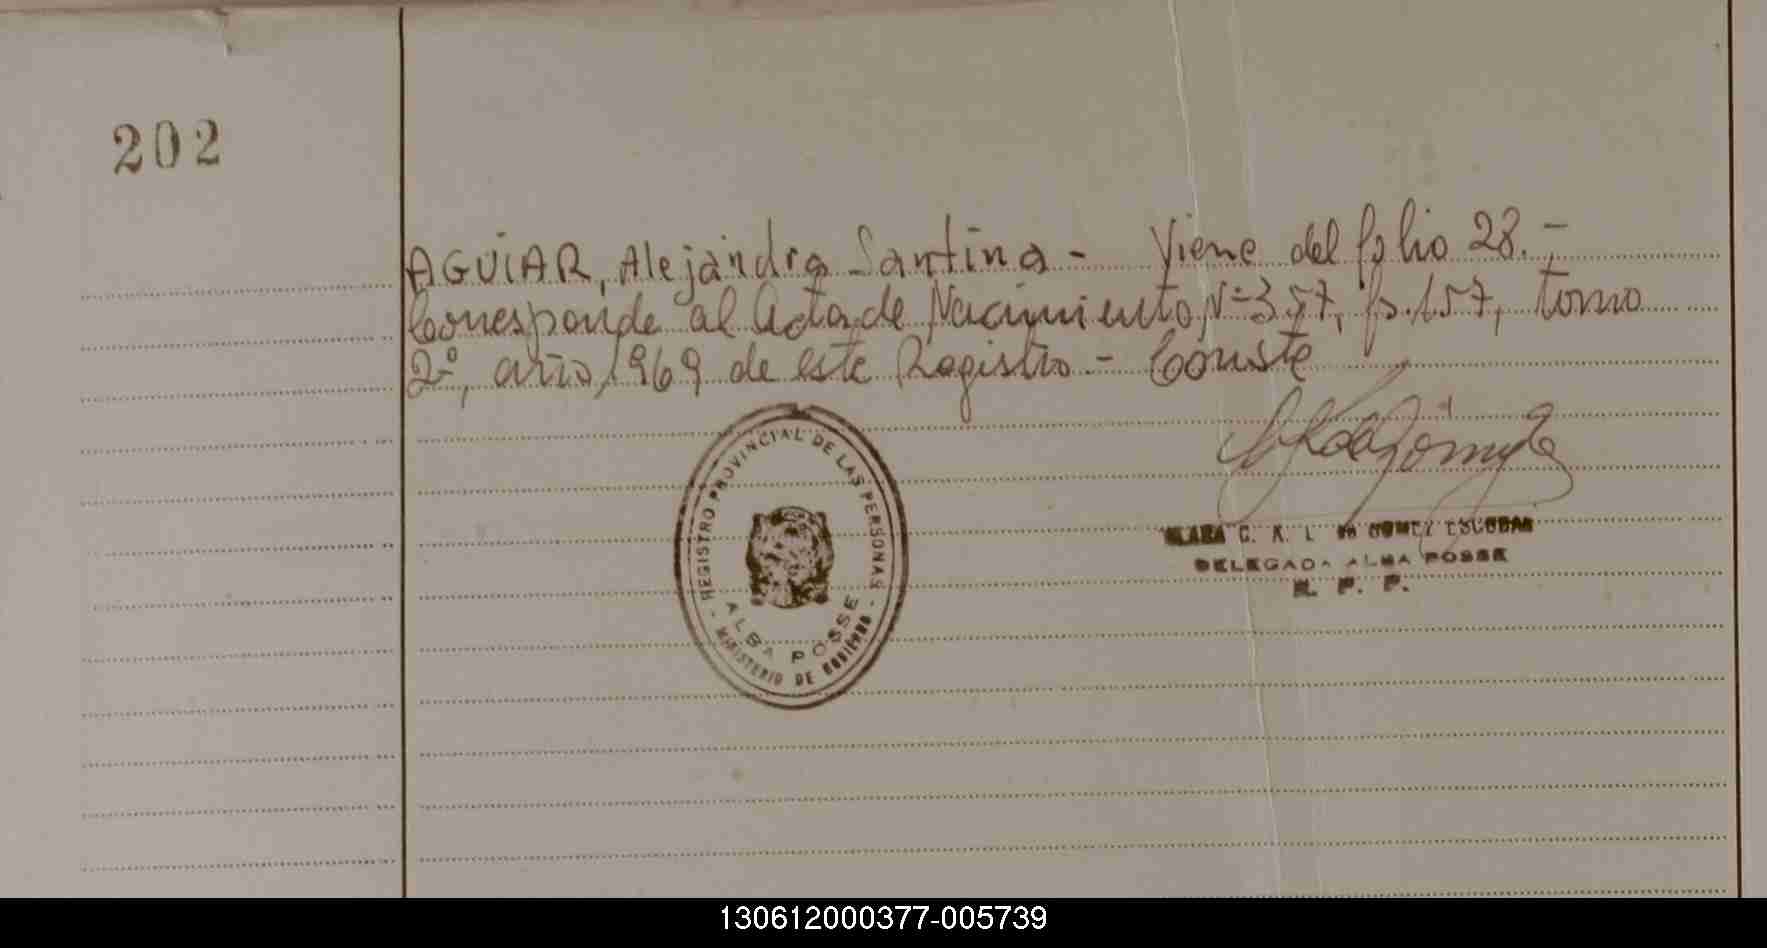 202
AGUIAR, Alejandra Santina - Viene del folio 28. -
Corresponde al Acta de Nacimiento Nº 357, fs. 157, tomo
2º, año 1969 de este Registro. - Conste
REGISTRO PROVINCIAL DE LAS PERSONAS
ALBA POSSE
- MINISTERIO DE GOBIERNO -
CLARA C. K. L DE GOMEZ ESCOBAR
DELEGADA ALBA POSSE
R. P. P.
130612000377-005739